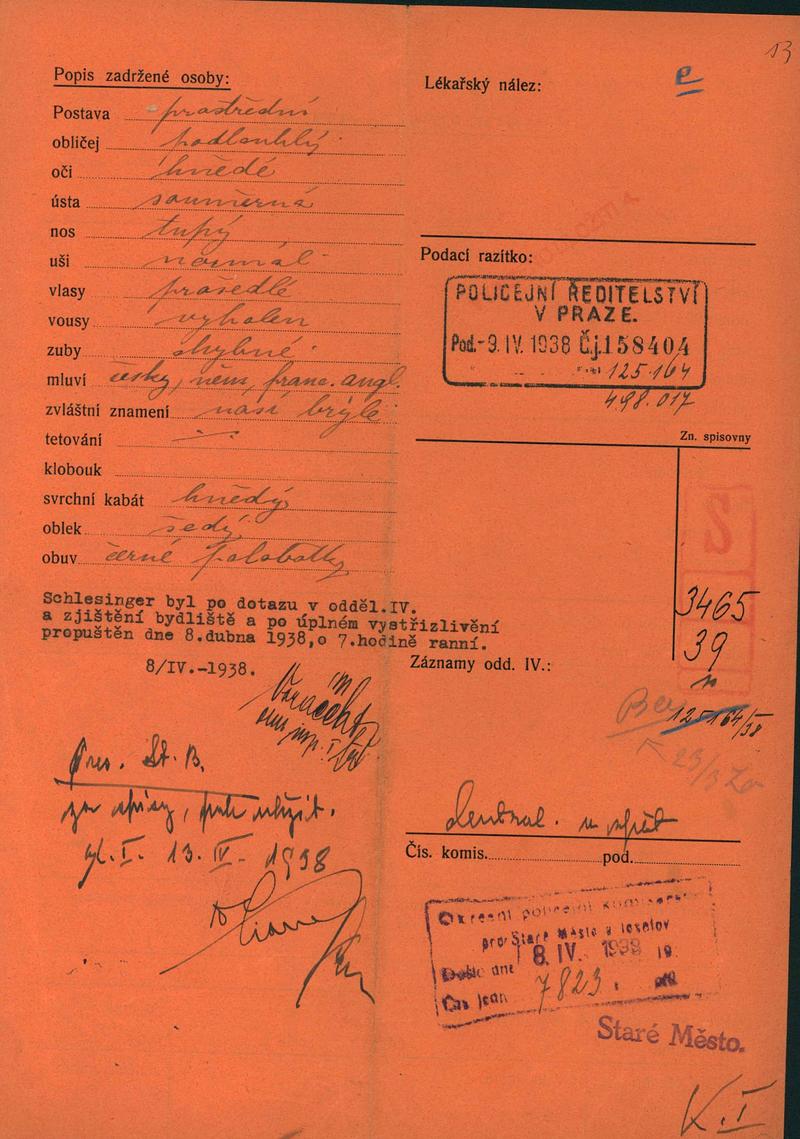 13
Popis zadržené osoby:
Postava prostřední
obličej podlouhlý
oči hnědé
ústa souměrná
nos tupý
uši normál
vlasy prošedlé
vousy vyholen
zuby chybné
mluví česky, něm, franc. angl.
zvláštní znamení nosí brýle
tetování
klobouk
svrchní kabát hnědý
oblek šedý
obuv černé polobotky
Schlesinger byl po dotazu v odděl.IV.
a zjištění bydliště a po úplném vystřizlivění
propuštěn dne 8.dubna 1938,o 7.hodině ranní.
8/IV.-1938.
Pres. St. B.
13. IV. 1938
Lékařský nález:
Podací razítko:
POLICEJNÍ ŘEDITELSTVÍ
V PRAZE.
Pod. -9. IV. 1938 Č.j. 158404
125.164
498.017
Zn. spisovny
S
3465
39
Záznamy odd. IV.:
125164/38
23/3
Čís. komis. pod.
Okresní policejní komisař
pro Staré Město a Josefov
Došlo dne 8. IV. 1938 19
Čís. jedn. 7823
Staré Město.
K. I